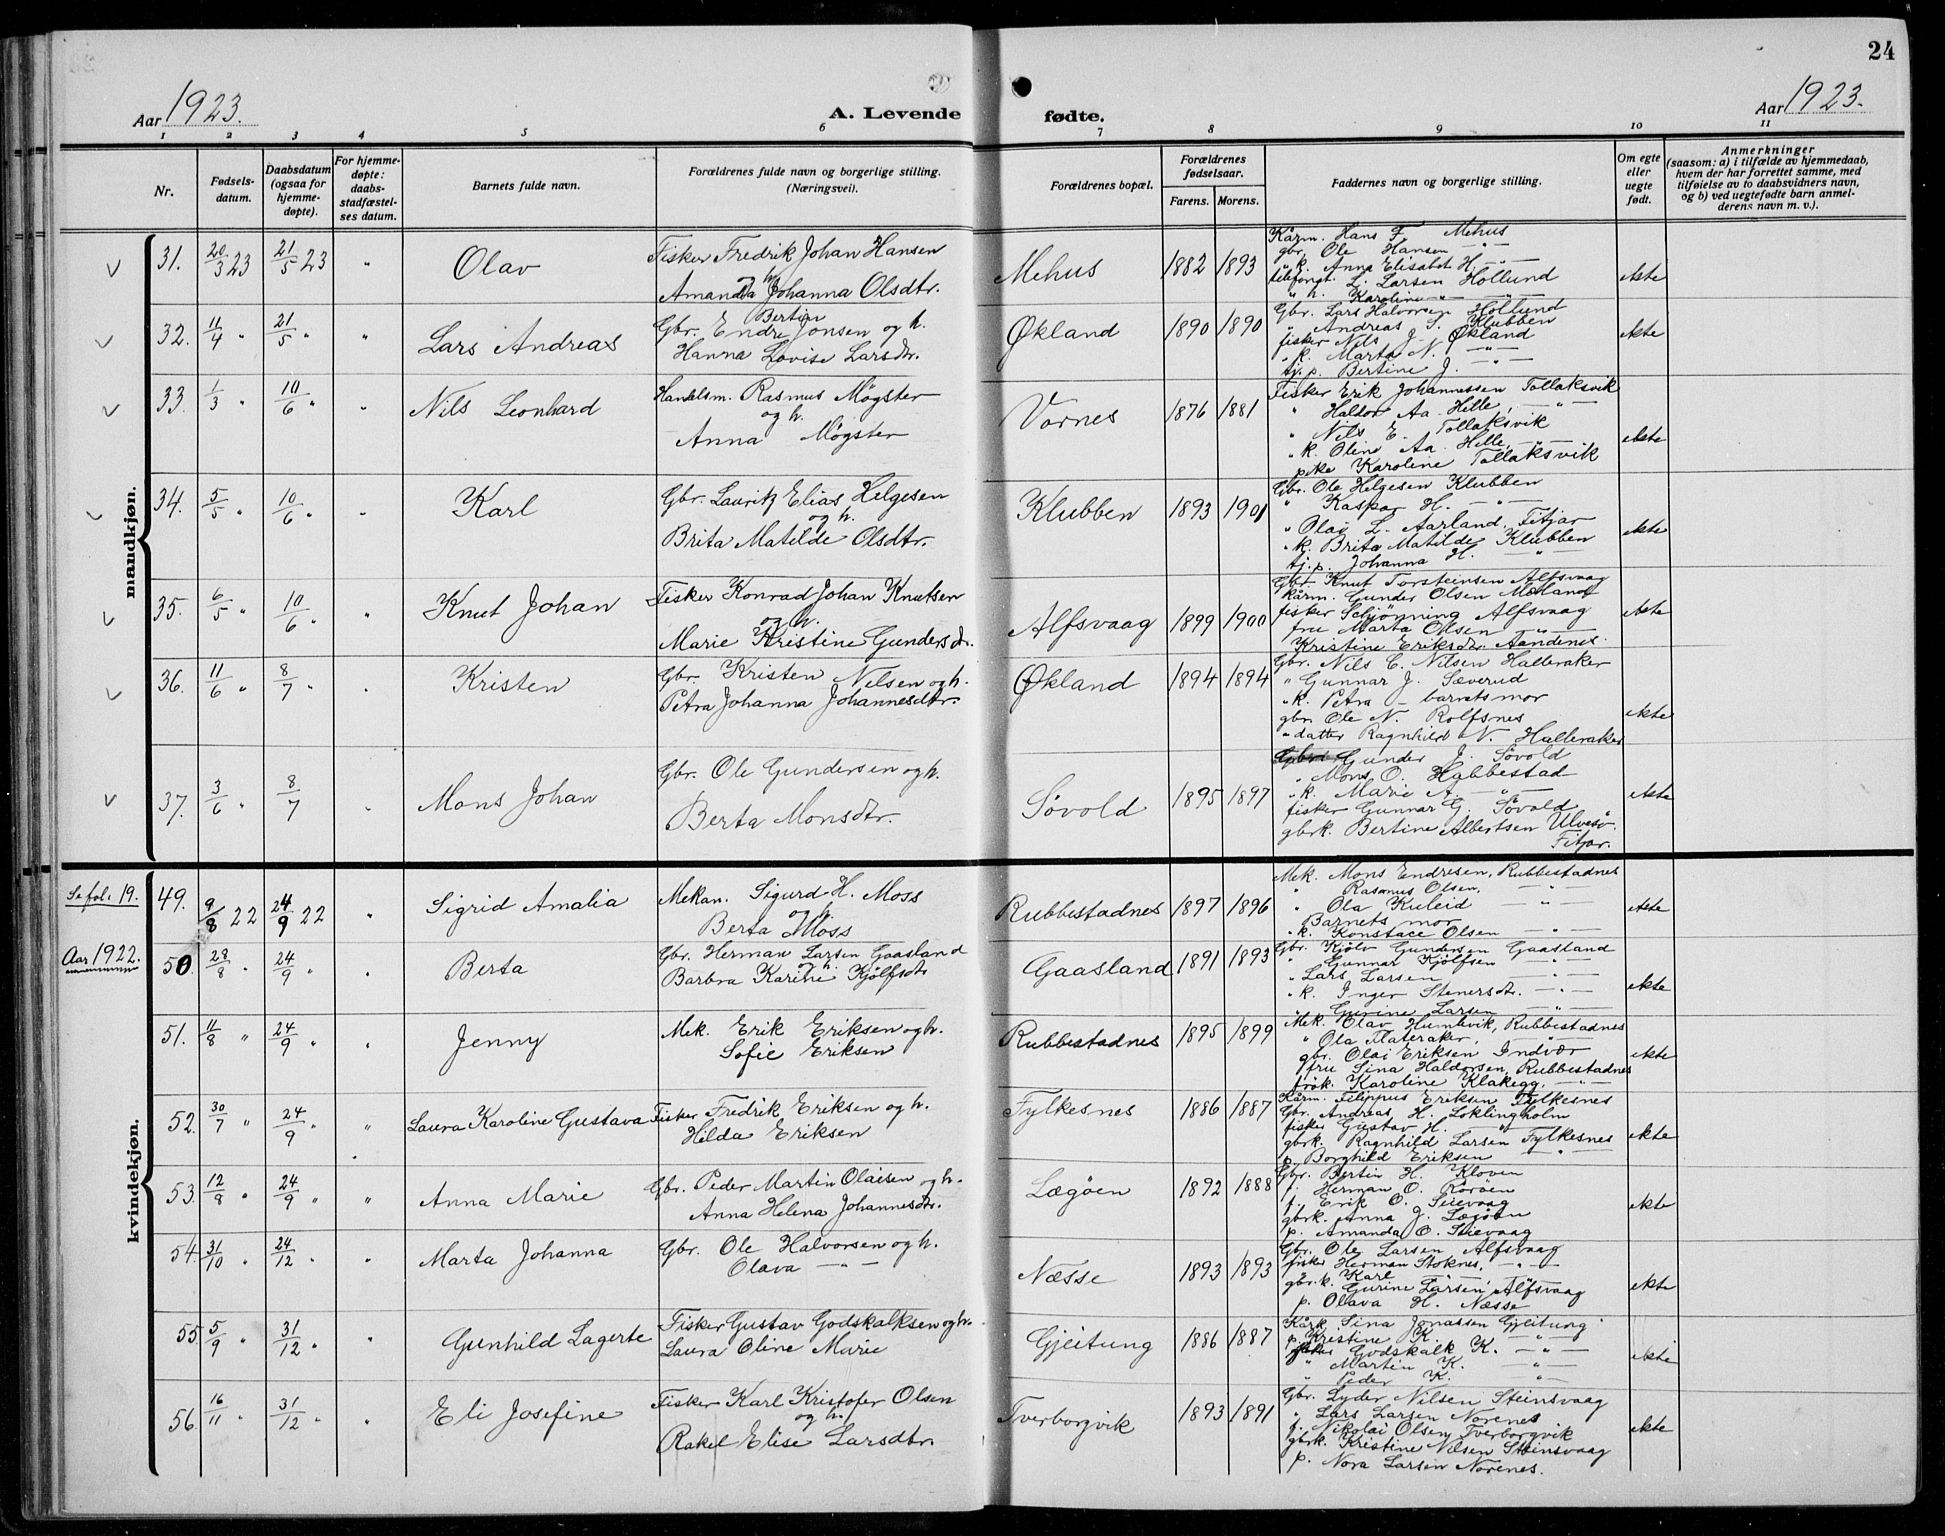 24
Aar 1923.
A. Levende fødte.
Aar 1923.
1 2 3 4 5 6 7 8 9 10 11
Nr.
Fødsels-
datum.
Daabsdatum
(ogsaa for
hjemme-
døpte).
For hjemme-
døpte:
daabs-
stadfæstel-
ses datum.
Barnets fulde navn.
Forældrenes fulde navn og borgerlige stilling.
(Næringsvei).
Forældrenes bopæl.
Forældrenes
fødselsaar.
Farens. Morens.
Faddernes navn og borgerlige stilling.
Om egte
eller
uegte
født.
Anmerkninger
(saasom: a) i tilfælde av hjemmedaab,
hvem der har forrettet samme, med
tilføielse av to daabsvidners navn,
og b) ved uegtefødte barn anmel-
derens navn m. v.).
mandkjøn.
31. 20/3 23 21/5 23 " Olav
Fisker Fredrik Johan Hansen
og h.
Amanda Johanna Olsdtr.
Mehus 1882 1893
Kårm. Hans F. Mehus
gbr. Ole Hansen — " —
" k. Anna Elisabet H. — " —
L. Larsen Hollund
" h. Karoline — " —
ekte
32. 11/4 " 21/5 " " Lars Andreas
Bertin
Gbr. Endre Jonsen og h.
Hanna Lovise Larsdtr.
Økland 1890 1890
Gbr. Lars Halvorsen Hollund
" Andreas S. Klubben
fisker Nils J. Økland
" k. Marta N. — " —
tj. p. Bertine J. — " —
ekte
33. 1/3 " 10/6 " " Nils Leonhard
Handelsm. Rasmus Møgster
og h.
Anna Møgster
Vornes 1876 1881
Fisker Erik Johannessen Tollaksvik
" Haldor Aa. Helle, — " —
" Nils E. Tollaksvik
" k. Oline Aa. Helle, — " —
pike Karoline Tollaksvik
ekte
34. 5/5 " 10/6 " " Karl
Gbr. Lauritz Elias Helgesen
og h.
Brita Matilde Olsdtr.
Klubben 1893 1901
Gbr. Ole Helgesen Klubben
" Kaspar H. — " —
" Olai L. Aarland, Fitjar
" k. Brita Matilde Klubben
tj. p. Johanna H. — " —
ekte
35. 6/5 " 10/6 " " Knut Johan
Fisker Konrad Johan Knutsen
og h.
Marie Kristine Gundersdtr.
Alfsvaag 1899 1900
Gbr. Knut Torsteinsen Alfsvaag
Kårm. Gunder Olsen Mæland
fisker Schjønning Alfsvaag
fru Marta Olsen — " —
Kristine Eriksdtr. Aandenes.
ekte
36. 11/6 " 8/7 " " Kristen
Gbr. Kristen Nilsen og h.
Petra Johanna Johannesdtr.
Økland 1894 1894
Gbr. Nils C. Nilsen Halleraker
" Gunnar J. Sæverud
" k. Petra - barnets mor
gbr. Ole N. Rolfsnes
" datter Ragnhild N. Halleraker
ekte
37. 3/6 " 8/7 " Mons Johan
Gbr. Ole Gundersen og h.
Berta Monsdtr.
Søvold 1895 1897
Gunder J. Søvold
" Mons O. Habbestad
" k. Marie A. — " —
fisker Gunnar G. Søvold
gbrk. Bertine Albertsen Ulvesø.
Fitjar.
ekte
Se fol. 19.
Aar 1922.
kvindekjøn.
49. 9/8 22 24/9 22 " Sigrid Amalia
Mekan. Sigurd H. Moss
og h.
Berta Moss
Rubbestadnes 1897 1896
Mek. Mons Endresen, Rubbestadnes
" Rasmus Olsen, — " —
" Ola Kuleid — " —
Barnets mor
" k. Konstace Olsen — " —
ekte
50. 28/8 " 24/9 " " Berta
Gbr. Herman Larsen Gaasland
og h.
Barbra Karine Kjølfsdtr
Gaasland 1891 1893
Gbr. Kjølv Gundersen Gaasland
" Gunnar Kjølfsen — " —
" Lars Larsen — " —
" k. Inger Stenersdtr. — " —
" Gurine Larsen — " —
ekte
51. 11/8 " 24/9 " " Jenny
Mek. Erik Eriksen og h.
Sofie Eriksen
Rubbestadnes 1895 1899
Mek. Olav Humlevik, Rubbestadnes
" Ola Flateraker, — " —
gbr. Olai Eriksen Indvær
fru Sina Haldorsen, Rubbestadnes
frøk. Karoline Klakegg, — " —
ekte
52. 30/7 " 24/9 " " Laura Karoline Gustava
Fisker Fredrik Eriksen og h.
Hilda Eriksen
Fylkesnes 1886 1887
Kårm. Filippus Eriksen Fylkesnes
Gbr. Andreas H. Loklingholm
fisker Gustav H. — " —
gbrk. Ragnhild Larsen Fylkesnes
p. Borghild Eriksen — " —
ekte
53. 12/8 " 24/9 " " Anna Marie
Gbr. Peder Martin Olaisen og h.
Anna Helena Johannesdtr.
Lægøen 1892 1888
Gbr. Bertin H. Kloven
f. Herman O. Rørøen
f. Erik O. Seievaag
gbrk. Anna J. Lægøen
p. Amanda O. Seievaag
ekte
54. 31/10 " 24/12 " " Marta Johanna
Gbr. Ole Halvorsen og h.
Olava — " —
Næsse 1893 1893
Gbr. Ole Larsen Alfsvaag
fisker Herman Stoknes, — " —
" Karl — " —
gbr. k. Gurine Larsen, Alfsvaag
p. Olava H. Næsse
ekte
55. 5/9 31/12 " " Gunhild Lagerte
Fisker Gustav Godskalksen og h.
Laura Oline Marie
Gjeitung 1886 1887
Kårk. Sina Jonassen Gjeitung
p. Kristine K. — " —
fisker Godskalk K. — " —
" Martin K. — " —
" Peder K. — " —
ekte
56. 16/11 " 31/12 " " Eli Josefine
Fisker Karl Kristofer Olsen
og h.
Rakel Elise Larsdtr.
Tverborgvik 1893 1891
Gbr. Lyder Nilsen Steinsvaag
" Lars Larsen Norenes
f. Nikolai Olsen Tverborgvik
gbrk. Kristine Nilsen Steinsvaag
p. Nora Larsen Norenes.
ekte